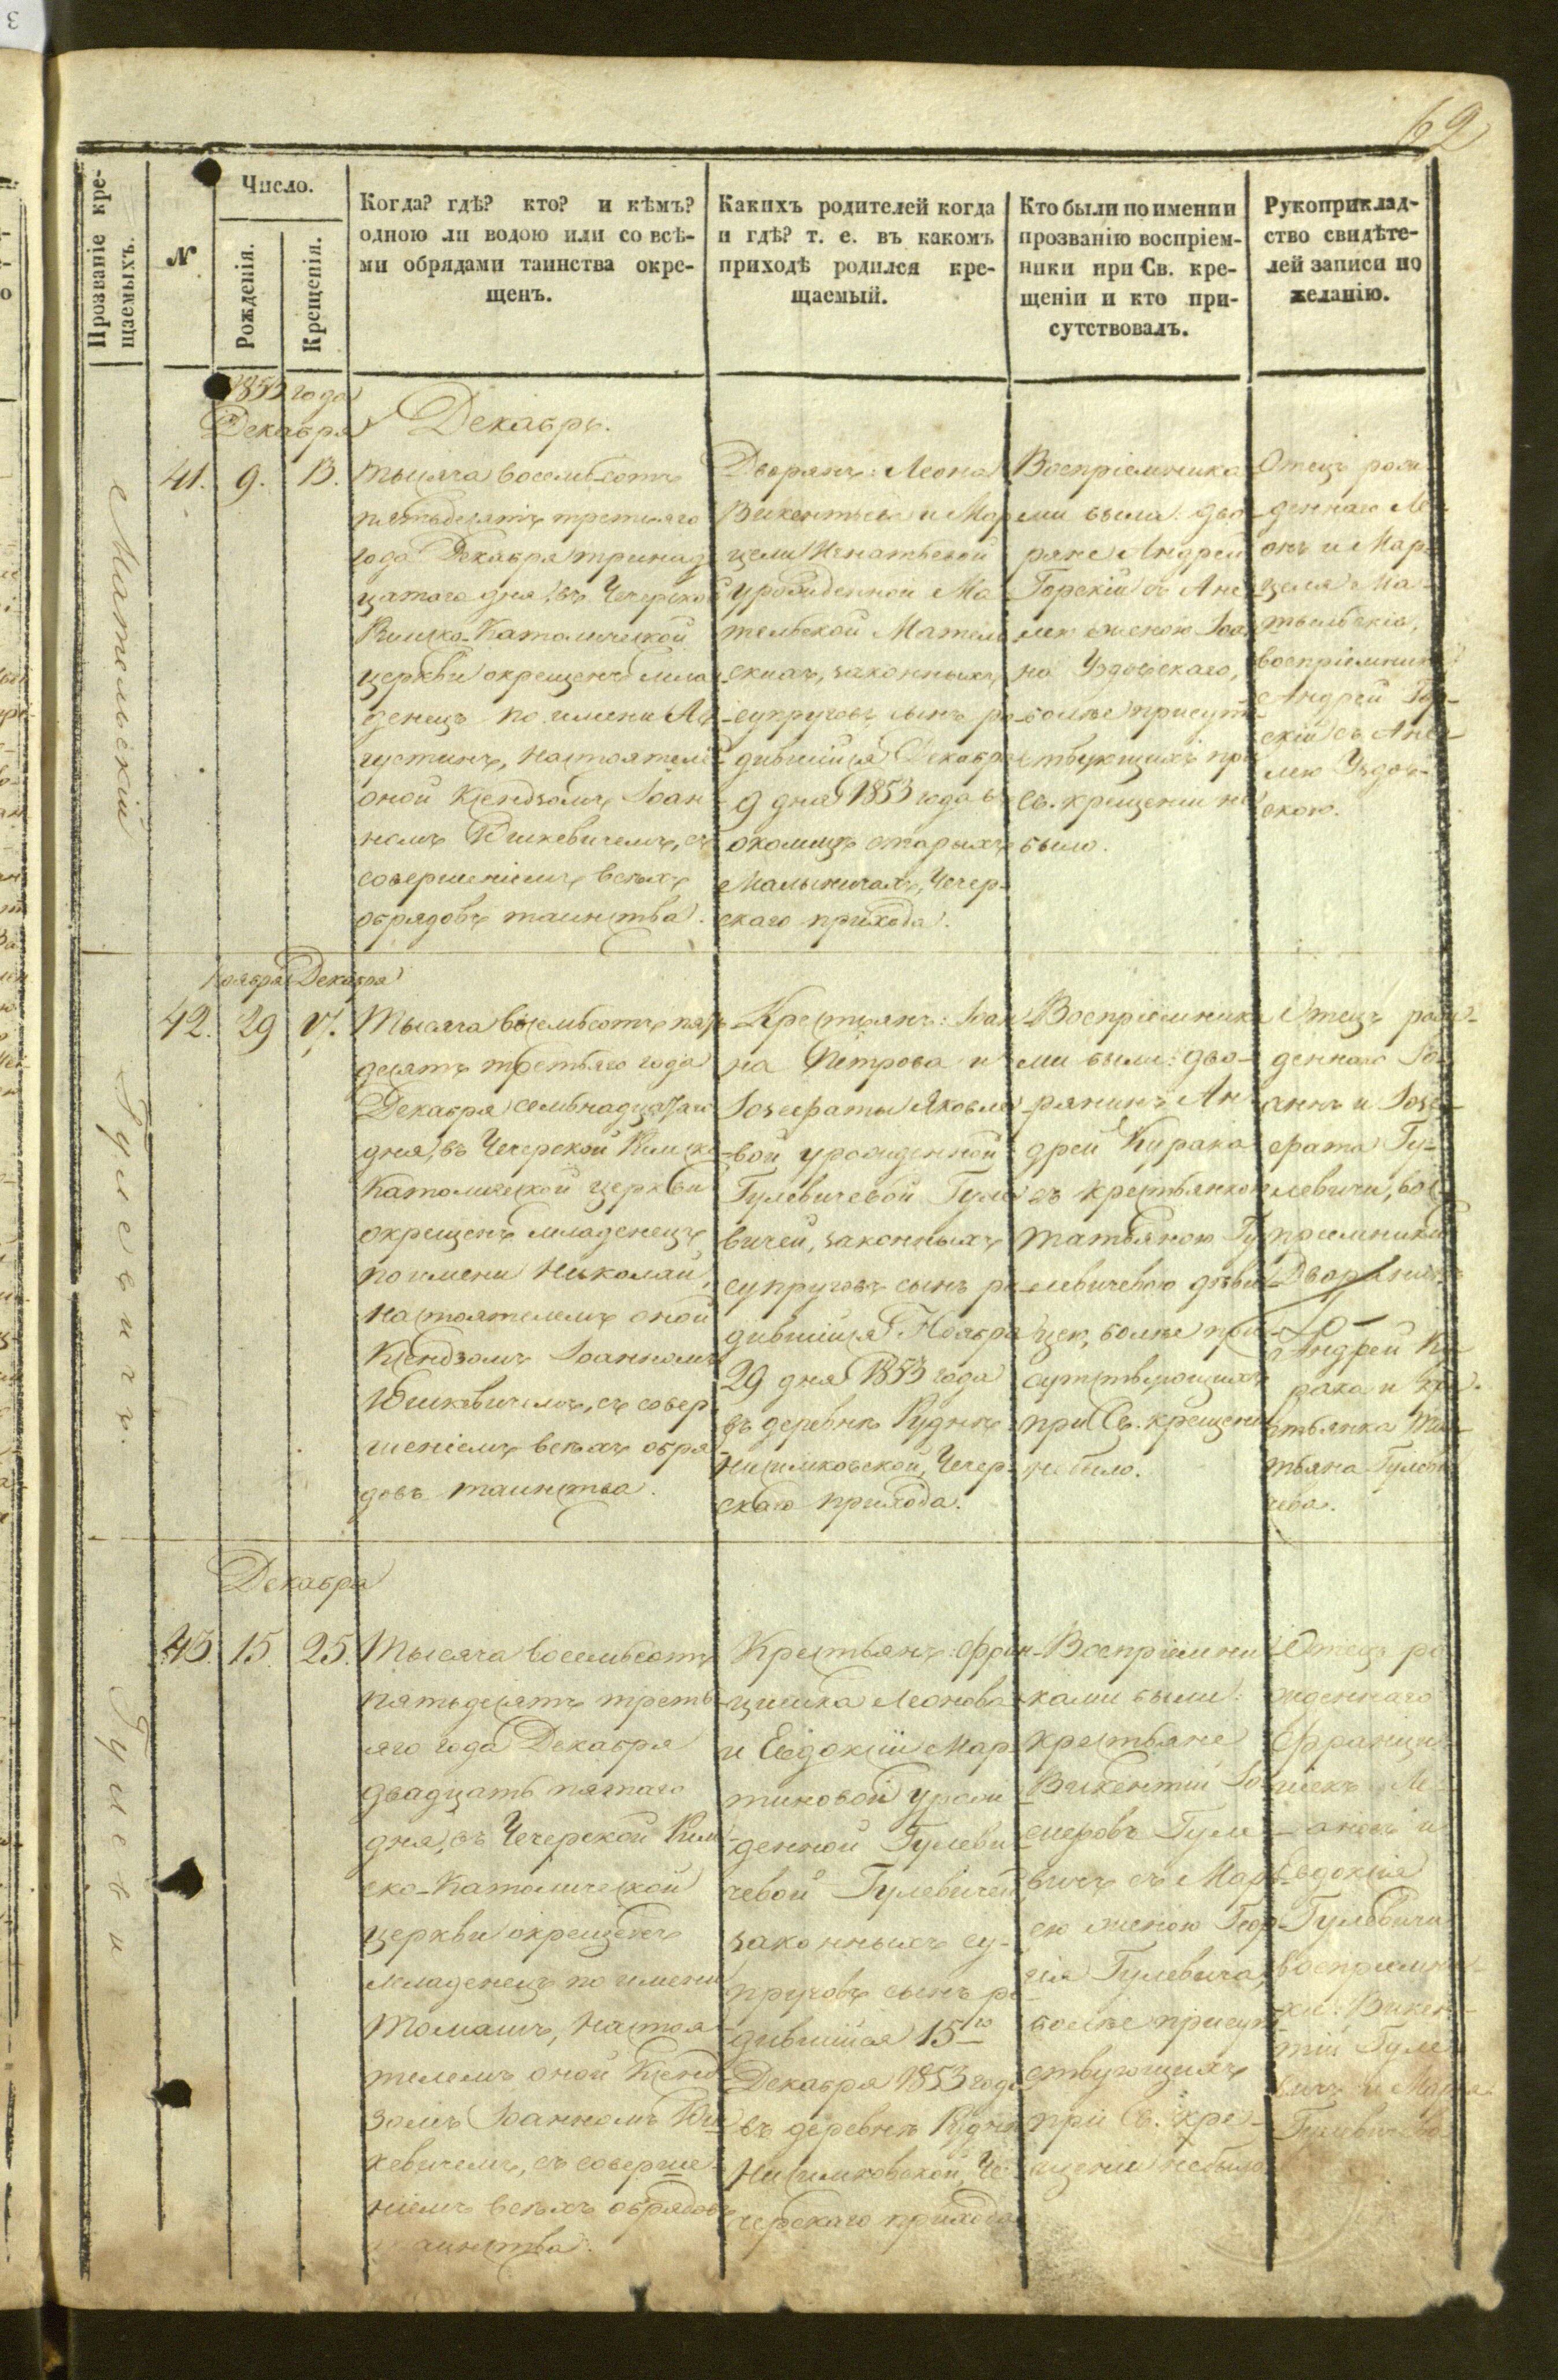 62
Прозваніе кре-
щаемыхъ.
№
Число.
Рожденія.
Крещенія.
Когда? гдѣ? кто? и кѣмъ?
одною ли водою или со всѣ-
ми обрядами таинства окре-
щенъ.
Какихъ родителей когда
и гдѣ? т. е. въ какомъ
приходѣ родился кре-
щаемый.
Кто были по имени и
прозванію воспріем-
ники при Св. кре-
щеніи и кто при-
сутствовалъ.
Рукоприклад-
ство свидѣте-
лей записи по
желанію.
1853 года
Декабря
Декабрь.
Мательскій
41.
9.
13.
Тысяча восемьсотъ
пятьдесятъ третьяго
года Декабря тринад
цатого дня, въ Чечерской
Римско-Католической
церкви окрещенъ мла
денецъ по имени Ав
густинъ, Настоятеле
оной Ксендзомъ Іоан
номъ Юшкевичемъ, съ
совершеніемъ всѣхъ
обрядовъ таинства.
Дворянъ: Леона
Викентьева и Мар
цели Игнатьевой
урожденной Ма
тельской Матель
скихъ, законныхъ
супруговъ сынъ ро
дившійся Декабря
9 дня 1853 года въ
околицѣ старыхъ
Малыничахъ, Чечер-
скаго прихода.
Воспріемника
ми были: дво
ряне Андрей
Горскій съ Ане
лею женою Іоа
на Уздовскаго,
болѣе присут
ствующихъ при
Св. крещеніи не
было.
Отецъ рож
деннаго Ле
онъ и Мар
целя Ма
тельскіе,
воспріемники
Андрей Гор-
скій съ Ане-
лею Уздов-
скою.
Ноября Декабря
Гулевичъ.
42.
29
17.
Тысяча восемьсотъ пять
десятъ третьяго года
Декабря семьнадцатаго
дня, въ Чечерской Римско
Католической церкви
окрещенъ младенецъ
по имени Николай,
настоятелемъ оной
Ксендзомъ Іоанномъ
Юшкевичемъ, съ совер
шеніемъ всѣхъ обря
довъ таинства.
Крестьянъ: Іоан
на Петрова и
Іозефаты Яковле
вой урожденной
Гулевичевой Гуле
вичей, законныхъ
супруговъ сынъ ро
дившійся Ноября
29 дня 1853 года
въ деревнѣ Руднѣ
Нисимковской, Чечер-
скаго прихода.
Воспріемника
ми были: дво-
рянинъ Ан
дрей Кирака
съ крестьянкою
Татьяною Гу
левичевою дѣви
цею, болѣе при
сутствующихъ
при Св. крещеніи
не было.
Отецъ рож-
деннаго Іо
аннъ и Іозе-
фата Гу-
левичи, вос
пріемники
Дворянинъ
Андрей Ки
рака и кре-
стьянка Та-
тьяна Гулеви
чева.
Декабря
Гулевичъ
43.
15.
25.
Тысяча восемьсотъ
пятьдесятъ треть
яго года Декабря
двадцать пятаго
дня, въ Чечерской Рим
ско-Католической
церкви окрещенъ
младенецъ по имени
Томашъ, Настоя
телемъ оной Ксенд
зомъ Іоанномъ Юш
кевичемъ, съ соверше
ніемъ всѣхъ обрядовъ
таинства.
Крестьянъ: Фран
цишка Леонова
и Евдокіи Мар
тиновой урож
денной Гулеви
чевой Гулевичей
законныхъ су-
пруговъ сынъ ро
дившійся 15го
Декабря 1853 года
въ деревнѣ Руднѣ
Нисимковской, Че
черскаго прихода
Воспріемни
ками были:
крестьяне
Викентій
Гуле
вичъ съ Марь
ею женою Геор
гія Гулевича,
болѣе присут
ствующихъ
при Св. кре-
щеніи небыло
Отецъ ро
жденнаго
Францы
шекъ Ле-
оновъ и
Евдокія
Гулевичи
воспріемни-
ки: Викен-
тій Гуле
вичъ и Марья
Гулевичева